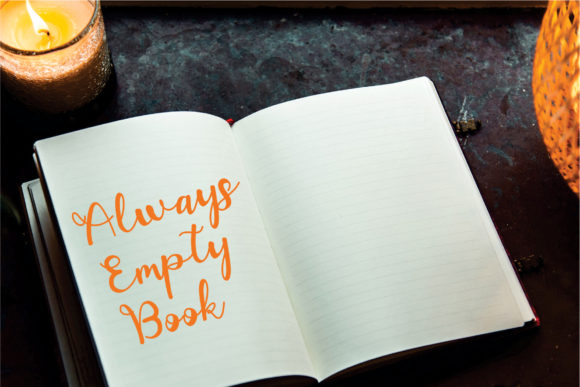 Always
Empty
Book